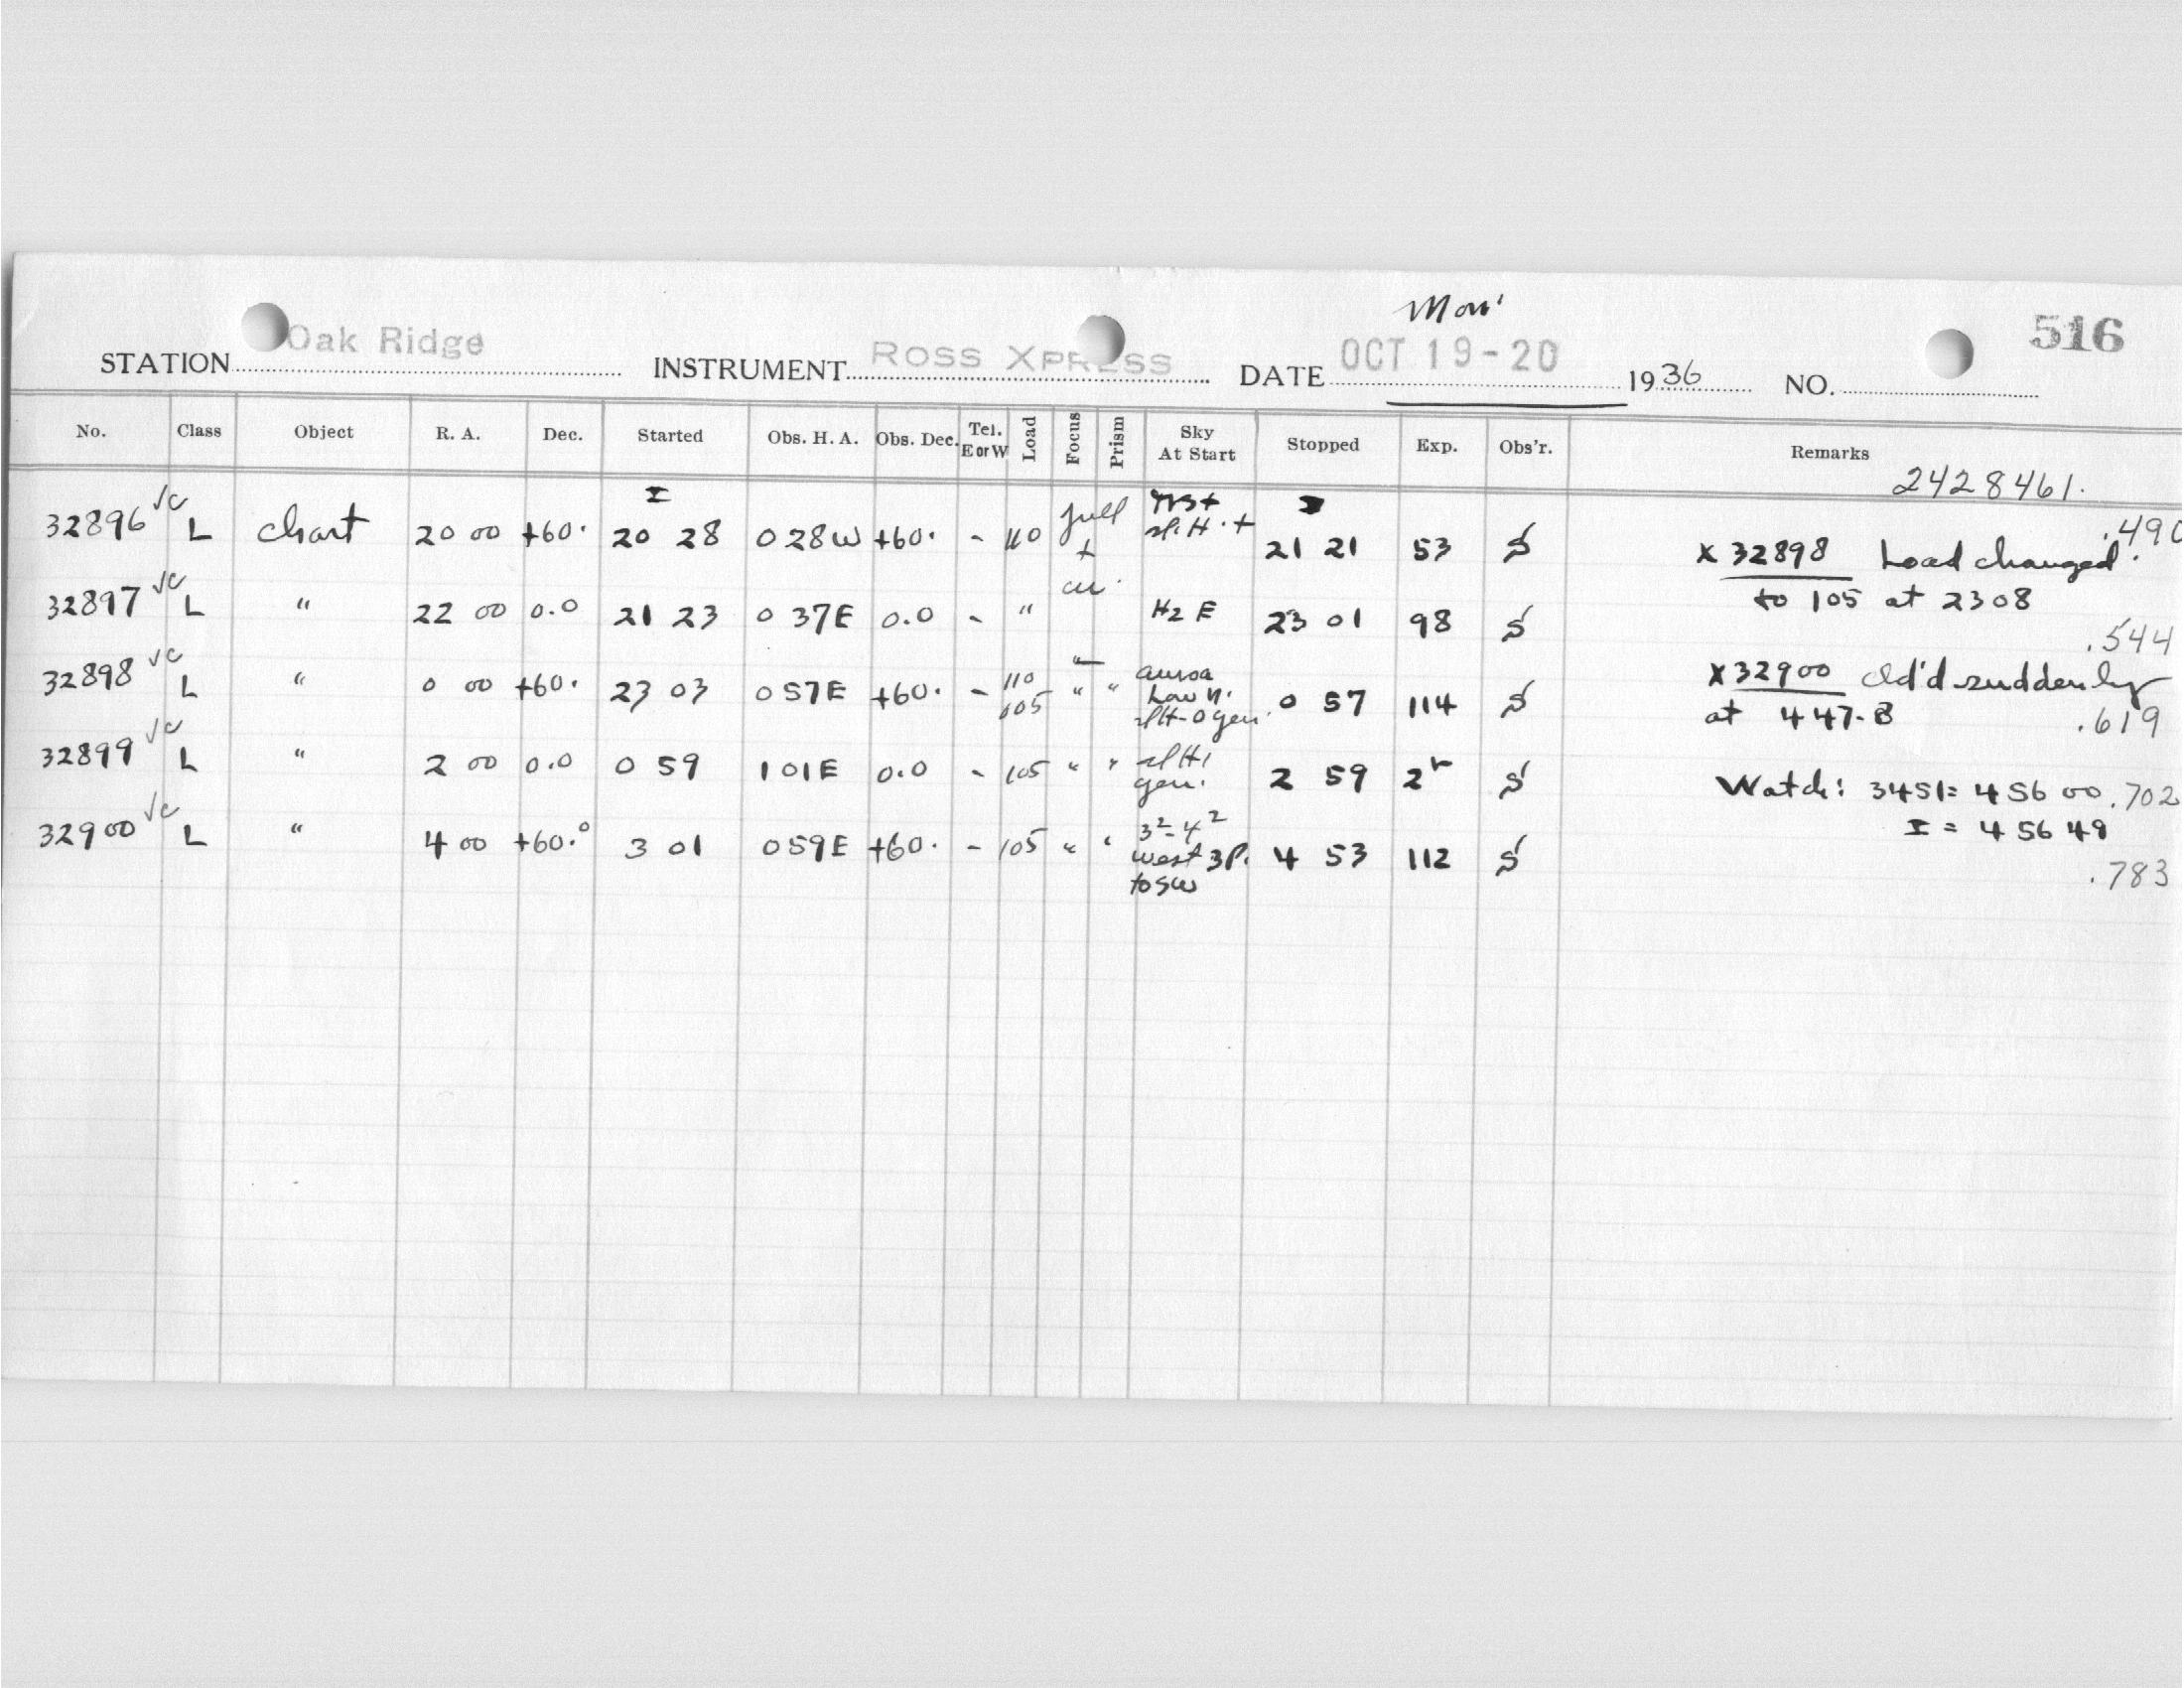 Mon'
516
STATION Oak Ridge INSTRUMENT ROSS XPRESS DATE OCT 19-20 1936 NO.
No. Class Object R. A. Dec. Started Obs. H. A. Obs. Dec. Tel. E or W Load Focus Prism Sky At Start Stopped Exp. Obs'r. Remarks
2428461.
32896 √c L chart 20 00 +60. I 20 28 0 28W +60. - 110 full + 21 21 53 S x 32898 Load changed .490
to 105 at 2308
32897 √c L " 22 00 0.0 21 23 0 37E 0.0 - " H2 E 23 01 98 S .544
32898 √c L " 0 00 +60. 23 03 0 57E +60. - 110 105 " " Low n. 0 57 114 S x 32900 cld'd suddenly
at 447.8 .619
32899 √c L " 2 00 0.0 0 59 1 01E 0.0 - 105 " " gen. 2 59 2h S Watch: 3451= 4 56 00 .702
I = 4 56 49
32900 √c L " 4 00 +60.° 3 01 0 59E +60. - 105 " " 3²-4² west 3P. to SW 4 53 112 S .783